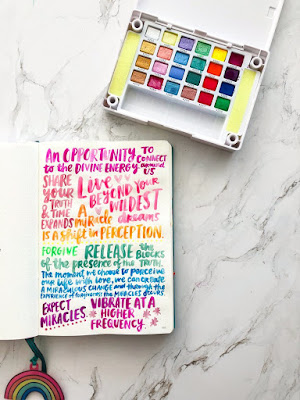 AN OPPORTUNITY TO CONNECT
to the DIVINE ENERGY around US
SHARE YOUR TRUTH & TIME EXPANDS
Live BEYOND YOUR WILDEST dreams
A miracle
is a shift in PERCEPTION.
FORGIVE RELEASE the BLOCKS
of the presence of the TRUTH.
The moment we choose to perceive
our life with love, we can create
A MIRACULOUS CHANGE and through the
EXPERIENCE of forgiveness the MIRACLE occurs.
EXPECT MIRACLES.
VIBRATE AT A HIGHER FREQUENCY.